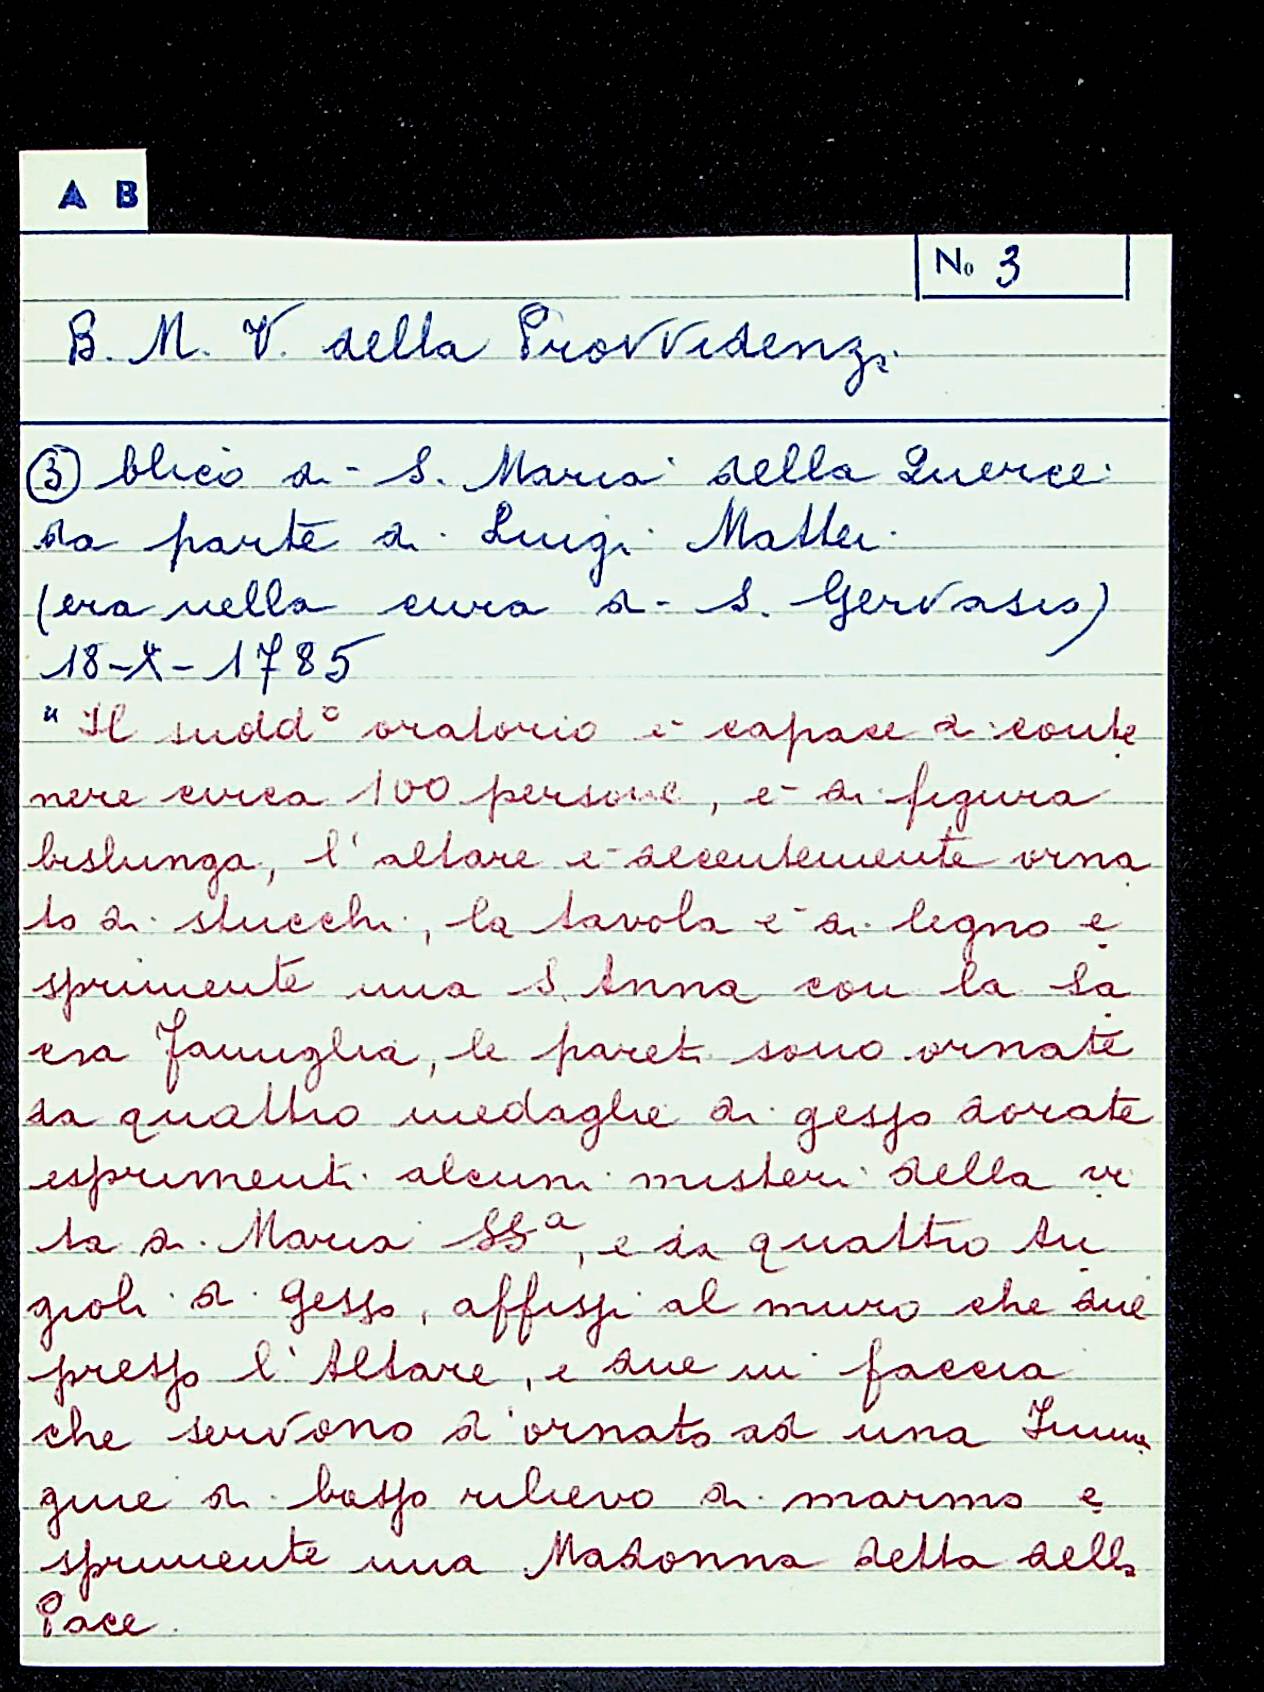 A B
No 3
B. M. V. della Provvidenza
③ blico di S. Maria della Querce
da parte di Luigi Mattei
(era nella cura di S. Gervasio)
18-X-1785
"Il sudd° oratorio è capace di conte
nere circa 100 persone, è di figura
bislunga, l'altare è decentemente orna
to di stucchi, la tavola è di legno e
sprimente una S. Anna con la Sa
cra Famiglia, le pareti sono ornate
da quattro medaglie di gesso dorate
esprimenti alcuni misteri della vi
ta di Maria SSª, e da quattro An
gioli di Gesso, affissi al muro che due
presso l'Altare, e due in faccia
che servono d'ornato ad una Imma
gine di basso rilievo di marmo e
sprimente una Madonna detta della
Pace.